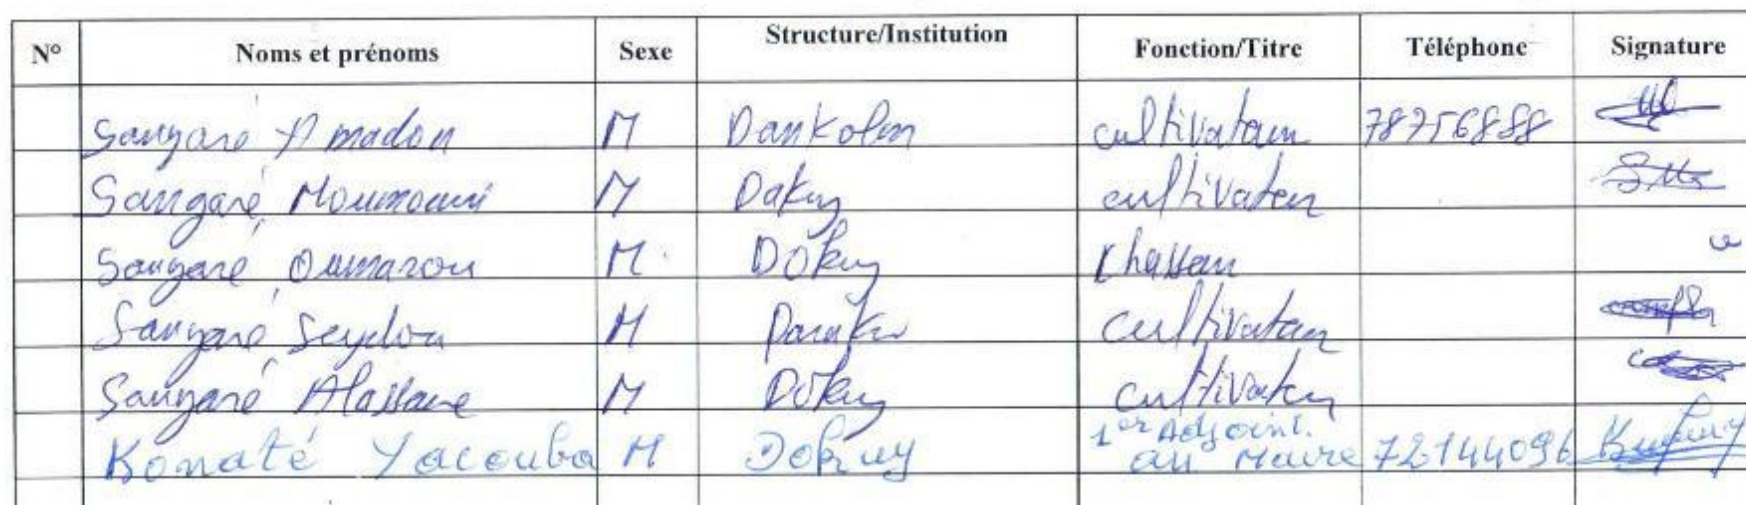 N° Noms et prénoms Sexe Structure/Institution Fonction/Titre Téléphone Signature
Sangaré Amadou M Dankolon cultivateur 78756888
Sangaré Moumouni M Dokuy cultivateur
Sangaré Oumarou M Dokuy
Sangaré Seydou M cultivateur
Sangaré Alassane M Dokuy cultivateur
1er Adjoint.
Konaté Yacouba M Dokuy au Maire 72144096